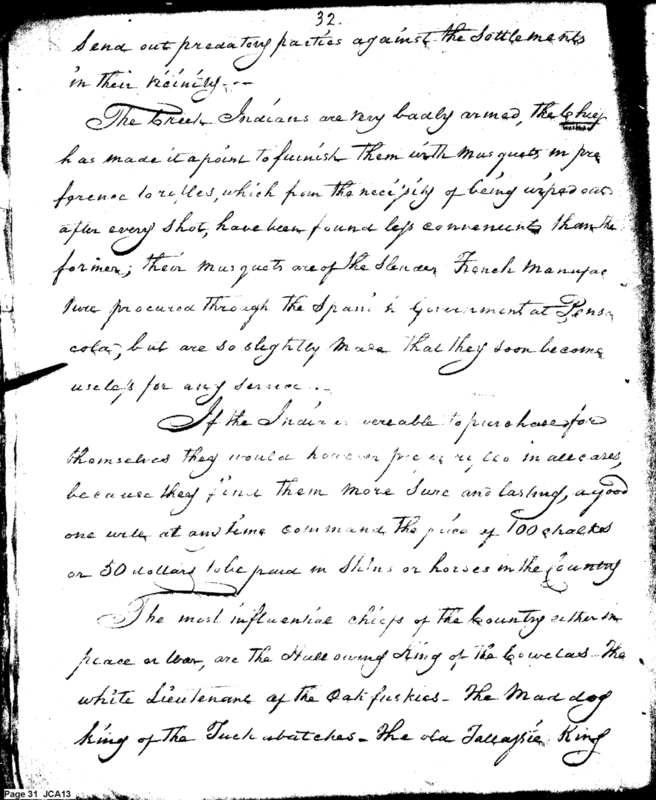 32.
Send out predatory parties against the Settlements
in their vicinity.--
The Creek Indians are very badly armed, the Chief
has made it a point to furnish them with musquets, in pre
ference to rifles, which from the necessity of being wiped out
after every shot, have been found less convenient than the
former; their musquets are of the slender French manufac
ture procured through the Spanish Government at Pensa
cola, but are so slightly made that they soon become
useless for any service.-
If the Indians were able to purchase for
themselves they would however prefer rifles in all cases,
because they find them more sure and lasting, a good
one will at any time command the price of 100 chalks
or 50 dollars to be paid in skins or horses in the Country
The most influential chiefs of the Country either in
peace or War, are the Hallowing King of the Cowetas - The
white Lieutenant of the Oakfuskies - The Mad dog
King of the Tuckabatches - The old Tallassie King
Page 31 JCA13